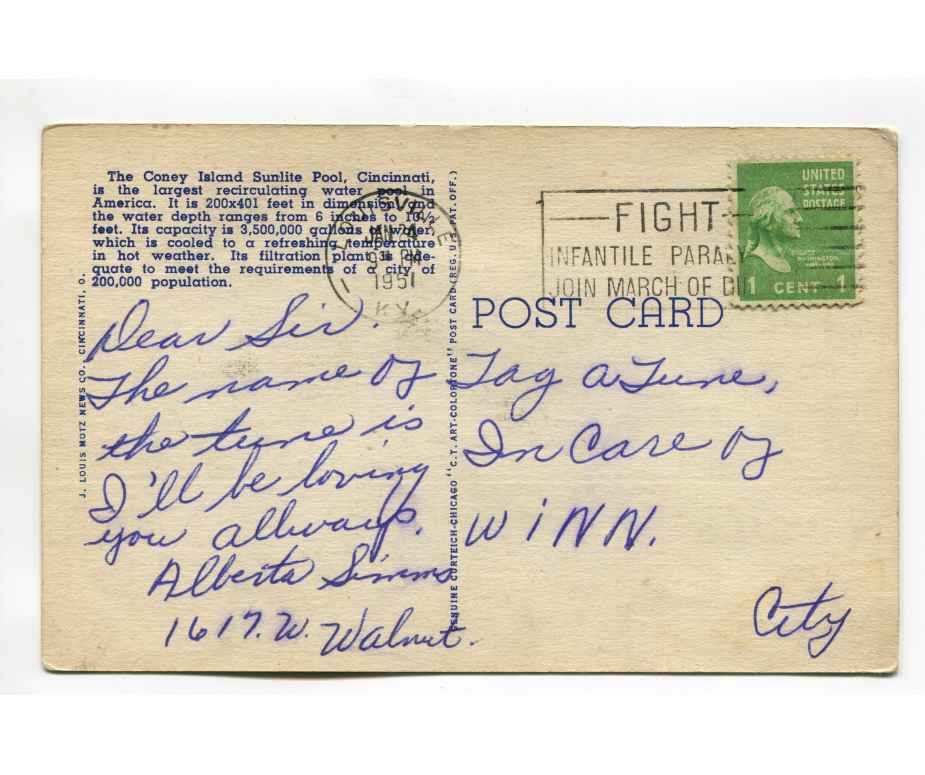 The Coney Island Sunlite Pool, Cincinnati,
is the largest recirculating water pool in
America. It is 200x401 feet in dimension, and
the water depth ranges from 6 inches to 10½
feet. Its capacity is 3,500,000 gallons of water,
which is cooled to a refreshing temperature
in hot weather. Its filtration plant is ade-
quate to meet the requirements of a city of
200,000 population.
J. LOUIS MOTZ NEWS CO., CINCINNATI, O.
Dear Sir.
The name of
the tune is
I'll be loving
you allways.
Alberta Simms
1617. W. Walnut.
GENUINE CURTEICH-CHICAGO "C.T. ART-COLORTONE" POST CARD (REG. U.S. PAT. OFF.)
LOUISVILLE
JAN 24
PM
1951
KY.
FIGHT
INFANTILE PARAL
JOIN MARCH OF DI
UNITED
STATES
POSTAGE
WASHINGTON
1 CENT 1
POST CARD
Tag A Tune,
In Care of
WiNN.
City